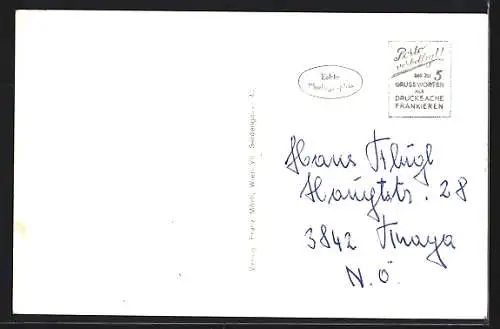 Echte
Photographie
Porto
verbilligt!
bei zu 5
GRUSSWORTEN
als
DRUCKSACHE
FRANKIEREN
Verlag Franz Mörtl, Wien VII.
Hans Flügl
Hauptstr. 28
3842 Thaya
N.Ö.